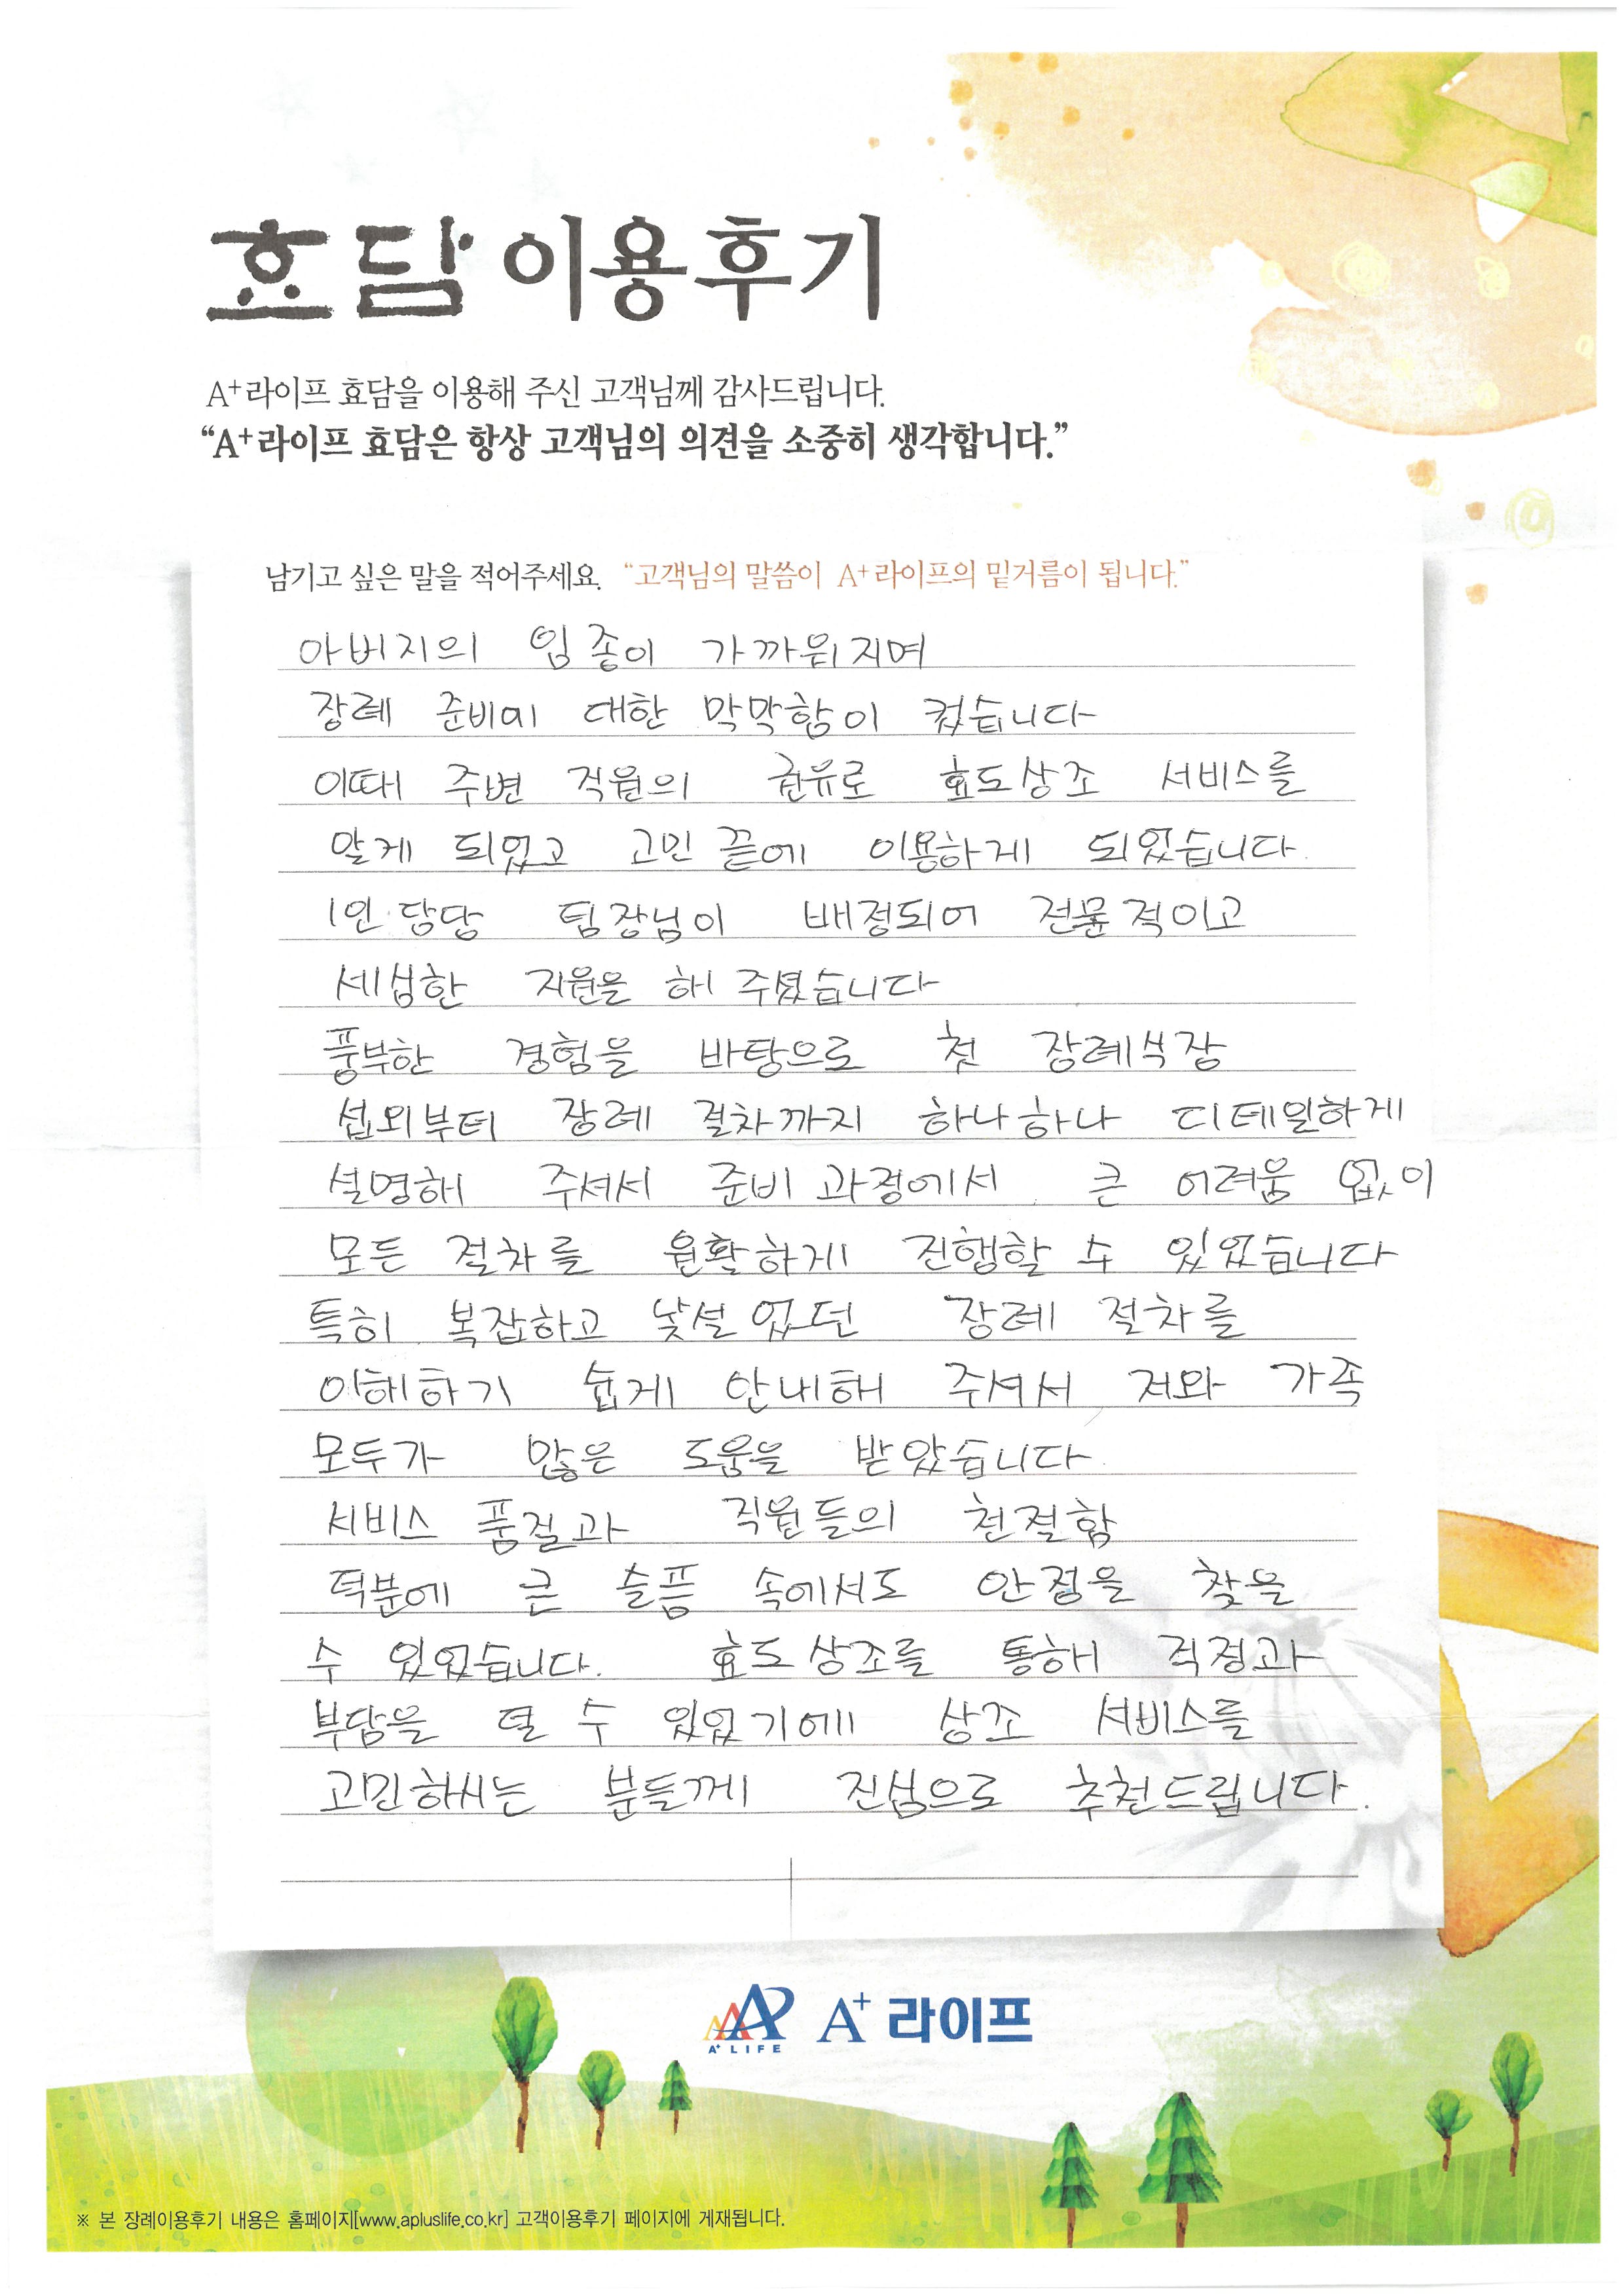 효담 이용후기
A+라이프 효담을 이용해 주신 고객님께 감사드립니다.
“A+라이프 효담은 항상 고객님의 의견을 소중히 생각합니다.”
남기고 싶은 말을 적어주세요. “고객님의 말씀이 A+라이프의 밑거름이 됩니다.”
아버지의 임종이 가까워지며
장례 준비에 대한 막막함이 컸습니다
이때 주변 직원의 권유로 효도상조 서비스를
알게 되었고 고민 끝에 이용하게 되었습니다.
1인 담당 팀장님이 배정되어 전문적이고
세심한 지원을 해 주셨습니다
풍부한 경험을 바탕으로 첫 장례식장
섭외부터 장례 절차까지 하나하나 디테일하게
설명해 주셔서 준비 과정에서 큰 어려움 없이
모든 절차를 원활하게 진행할 수 있었습니다
특히 복잡하고 낯설었던 장례 절차를
이해하기 쉽게 안내해 주셔서 저와 가족
모두가 많은 도움을 받았습니다.
서비스 품질과 직원들의 친절함
덕분에 큰 슬픔 속에서도 안정을 찾을
수 있었습니다. 효도상조를 통해 걱정과
부담을 덜 수 있었기에 상조 서비스를
고민하시는 분들께 진심으로 추천드립니다.
A+ LIFE A+ 라이프
※ 본 장례이용후기 내용은 홈페이지[www.apluslife.co.kr] 고객이용후기 페이지에 게재됩니다.